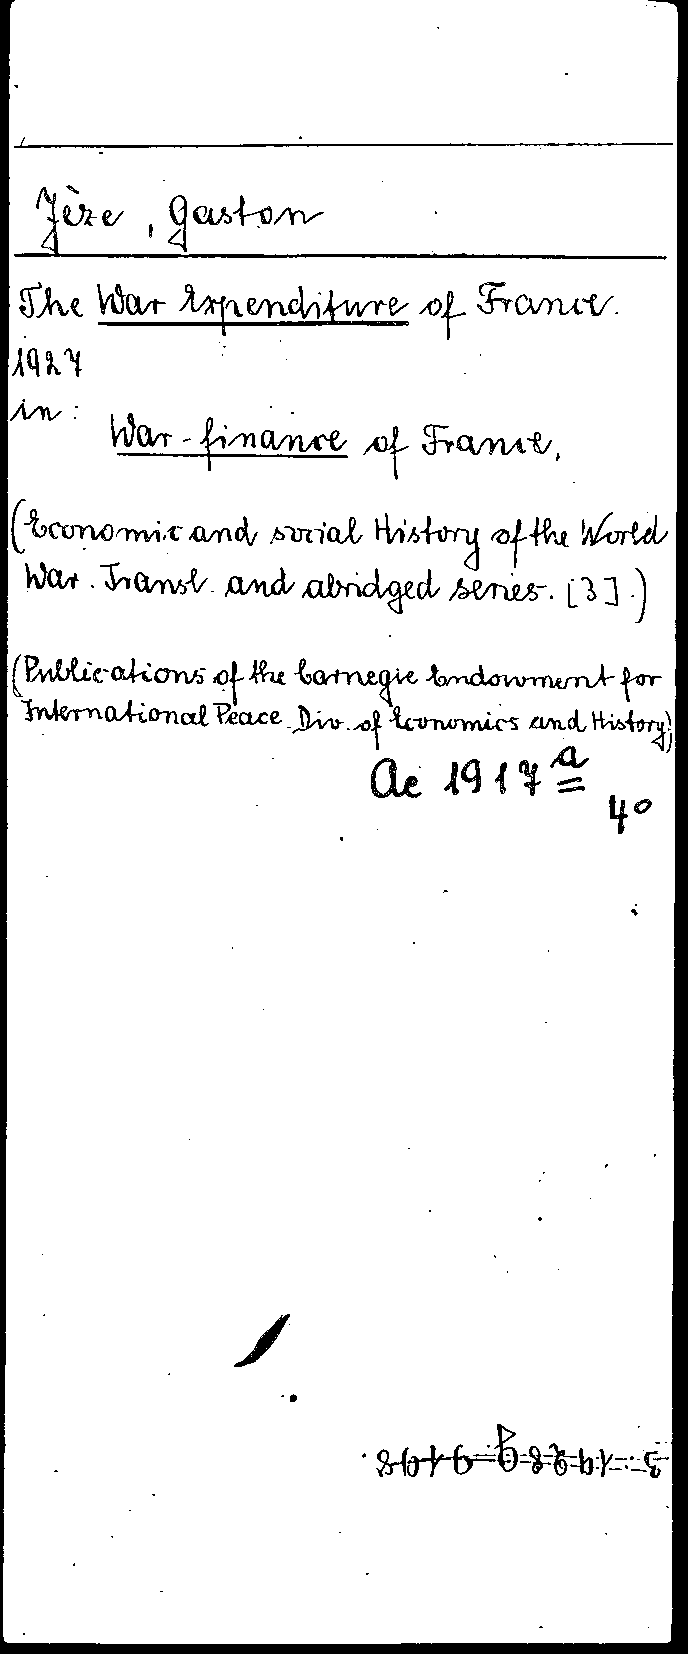 Jèze, Gaston
The War Expenditure of France.
1927
in:
War-finance of France.
(Economic and social History of the World
War. Transl. and abridged series. [3].)
(Publications of the Carnegie Endowment for
International Peace. Div. of Economics and History)
Ac 1917 a
4°